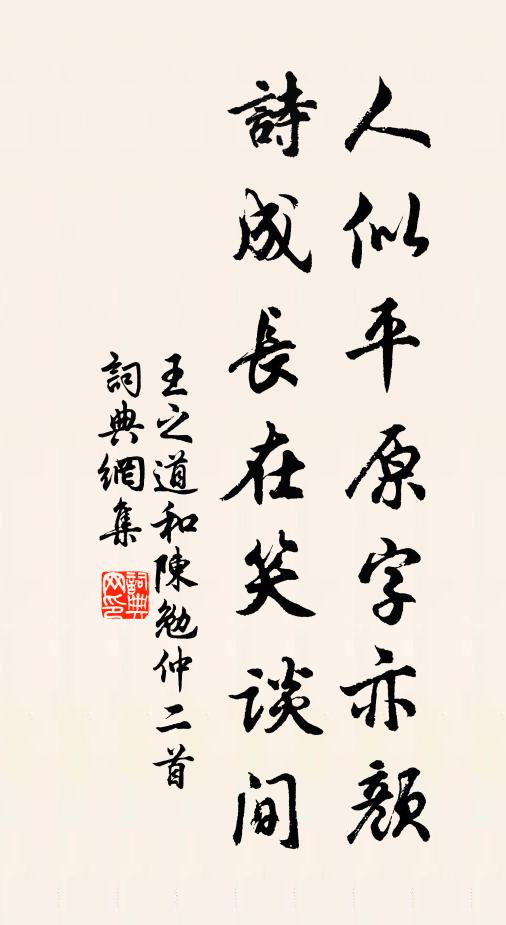 人似平原字亦顏
詩成長在笑談間
王之道和陳勉仲二首
詞典網集
詞典網印